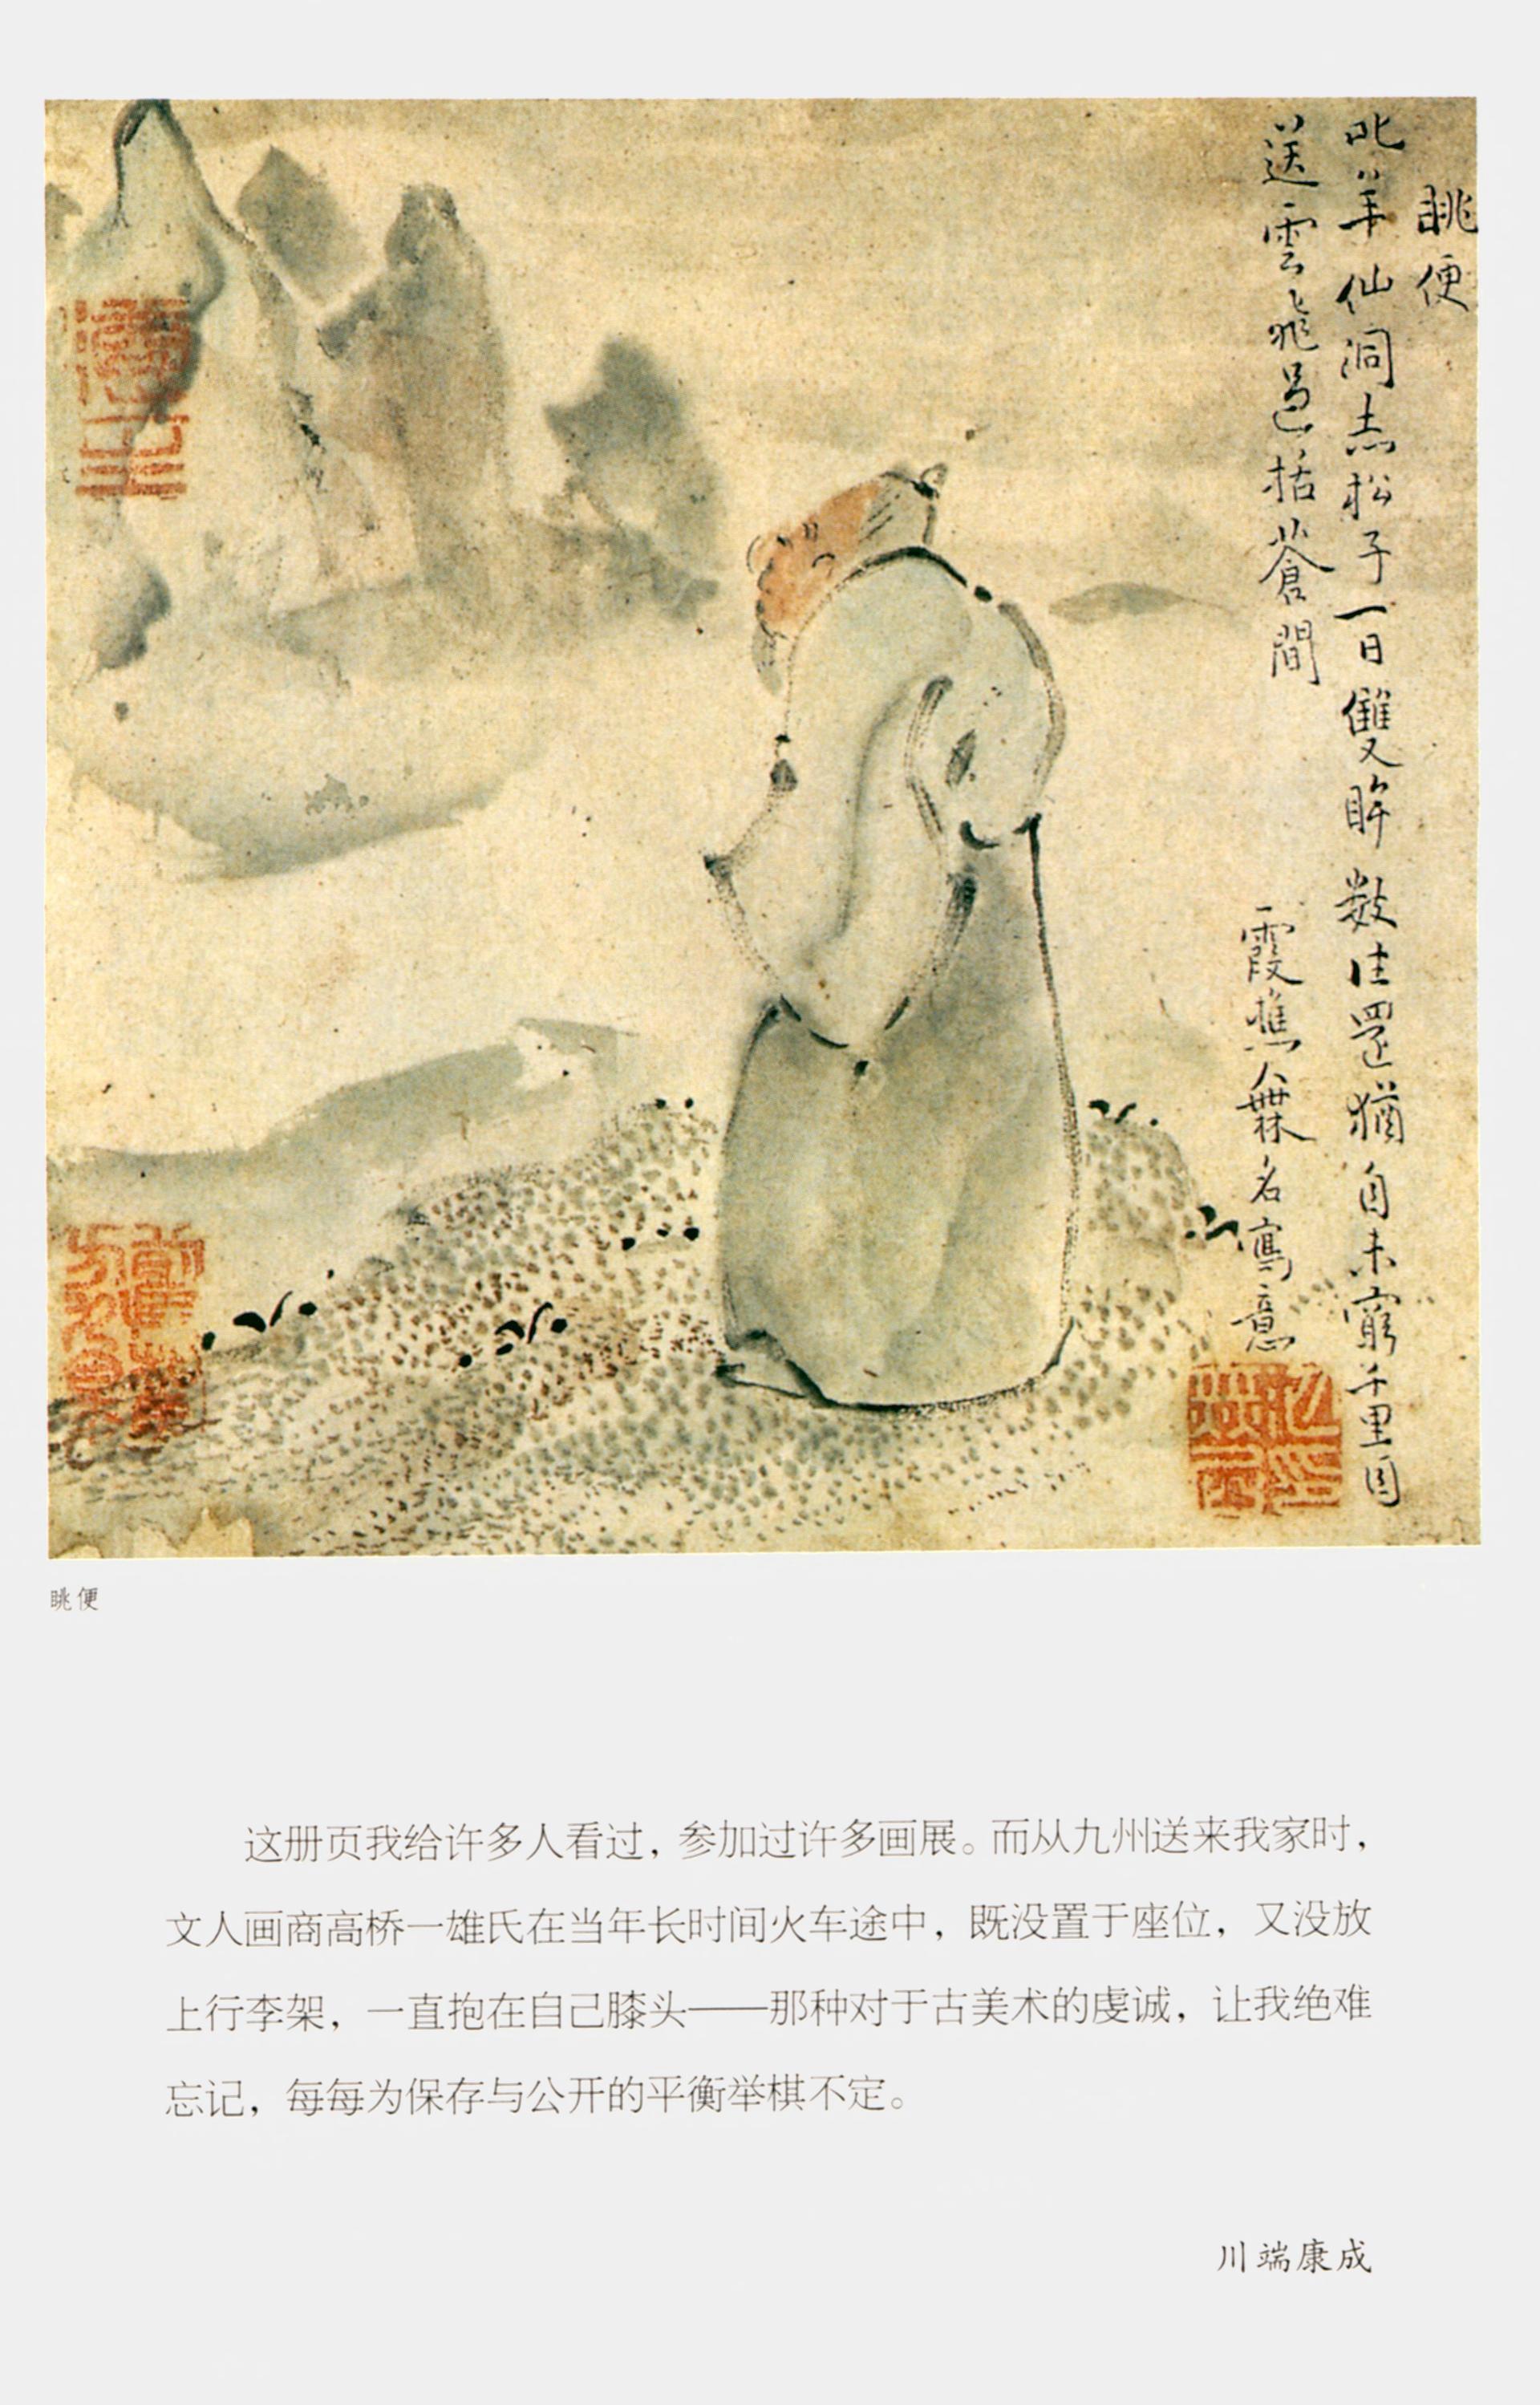 眺便
叱羊仙洞赤松子一日雙眸數往還猶自未窮千里目
送雲飛過括蒼間
霞樵人無名寫意
眺便
这册页我给许多人看过，参加过许多画展。而从九州送来我家时，
文人画商高桥一雄氏在当年长时间火车途中，既没置于座位，又没放
上行李架，一直抱在自己膝头——那种对于古美术的虔诚，让我绝难
忘记，每每为保存与公开的平衡举棋不定。
川端康成